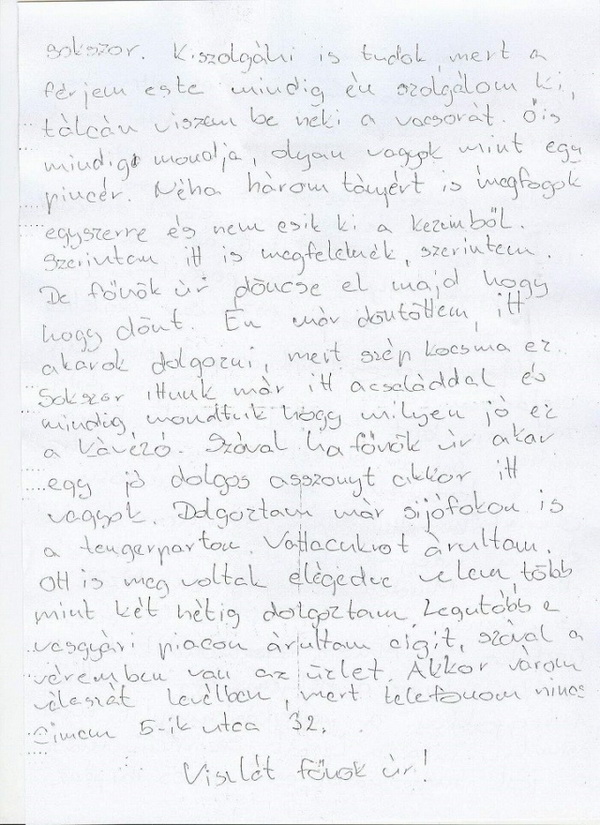 sokszor. Kiszolgálni is tudok, mert a
férjem este mindig én szolgálom ki,
tálcán viszem be neki a vacsorát. Őis
mindig mondja, olyan vagyok mint egy
pincér. Néha három tányért is megfogok
egyszerre és nem esik ki a kezemből.
Szerintem itt is megfelelnék, szerintem.
De főnök úr döncse el majd hogy
hogy dönt. Én már döntöttem, itt
akarok dolgozni, mert szép kocsma ez.
Sokszor ittunk már itt acsaláddal és
mindig mondtuk hogy milyen jó ez
a kávézó. Szóval ha főnök úr akar
egy jó dolgos asszonyt akkor itt
vagyok. Dolgoztam már sijófokon is
a tengerparton. Vattacukrot árultam.
Ott is meg voltak elégedve velem, több
mint két hétig dolgoztam. Legutóbb a
vasgyári piacon árultam cigit, szóval a
véremben van az üzlet. Akkor várom
válaszát levélben, mert telefonom nincs
Címem 5-ik utca 32.
Viszlát főnök úr!